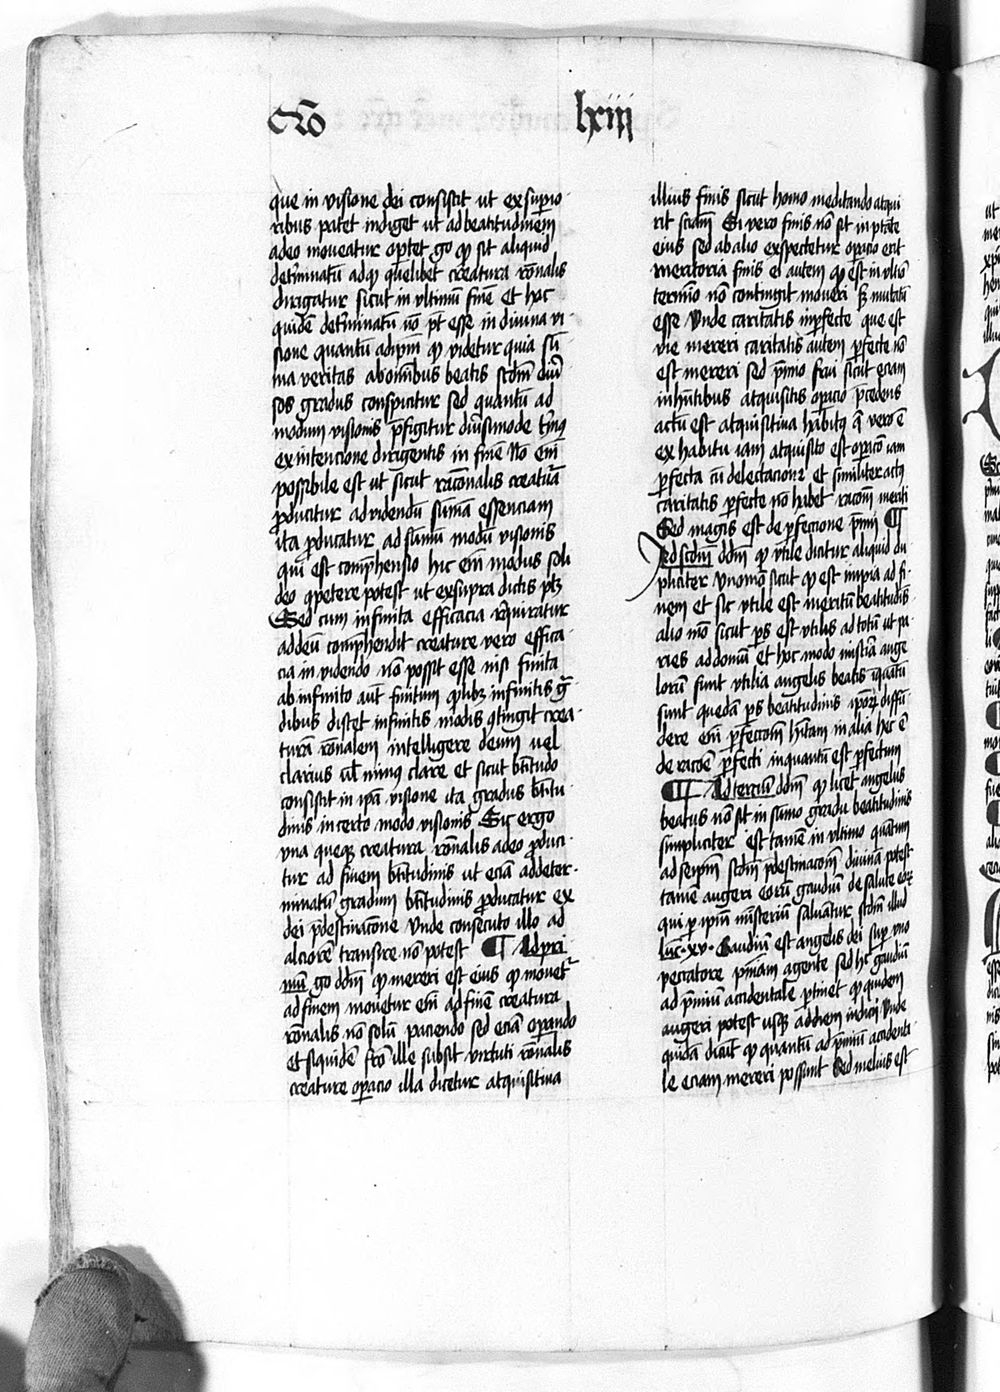 Qo̅ lxiij
que in visione dei consistit ut ex superio
ribus patet indiget ut ad beatitudinem
adeo moveatur op̅tet g̊o qd̛ sit aliquid
det̅minatu̅ adqd̛ quelibet creatura ro̅nalis
dirigatur sicut in vltimu̅ fine̅ Et hoc
quide̅ det̅minatu̅ no̅ p̅t esse in divina vi
sione quantu̅ ad ip̅m qd̛ videtur quia su̅
ma veritas ab om̅ibus beatis scd̅m div̅
sos gradus conspicitur sed quantu̅ ad
modum visionis p̅figitur div̅simode t̅minꝯ
ex intencione dirigentis in fine̅ No̅ em̅
possibile est ut sicut rac̅onalis creatura
ꝓducitur ad videndu̅ su̅ma̅ essenciam
ita ꝓducatur ad su̅mu̅ modu̅ visionis
qui est comp̅hensio hic em̅ modus soli
deo ꝯpetere potest ut ex supra dictis ptꝫ
Sed cum infinita efficacia req̅uiratur
ad deu̅ comp̅hendit creature vero effica
cia in videndo no̅ possit esse nisi finita
ab infinito aut̅ finitum q̅libꝫ infinitis g̅ͣ
dibus distet infinitis modis ꝯtingit crea
tura̅ ro̅nalem intelligere deum uel
clarius ul̅ minꝯ clare et sicut bt̅itudo
consistit in ip̅a visione ita gradus bt̅itu
dinis in certo modo visionis Sic ergo
una queqꝫ creatura ro̅nalis adeo ꝓduci
tur ad finem bt̅itudinis ut ecia̅ ad deter
minatu̅ gradum bt̅itudinis ꝓducatur ex
dei p̅destinac̅one Unde consecuto illo ad
alciore̅ transire no̅ potest ¶ Ad pri
mu̅ g̊o dd̅m qd̛ mereri est eius qd̛ movet᷑
ad finem movetur em̅ ad fine̅ creatura
ro̅nalis no̅ solu̅ paciendo sed ecia̅ op̅ando
Et siquide̅ fi̅s ille subsit virtuti ro̅nalis
creature op̅acio illa dicetur atquisitiua
illius finis sicut homo meditando atqui
rit scia̅m Si vero finis no̅ sit in p̅tate
eius sed ab alio expectetur op̅acio erit
meritoria finis ei autem qd̛ est in ultio̅
termi̅o no̅ contingit moveri sꝫ mutatu̅
esse Unde caritatis inp̅fecte que est
vie mereri caritatis autem p̅fecte no̅
est mereri sed p̅mio frui sicut eciam
in ha̅bitibus atquisitis op̅acio p̅cedens
actu̅ est atquisitiua ha̅bitꝯ q̅ vero e̅
ex habitu iam atquisito est op̅aco̅ iam
p̅fecta cu̅ delectacione Et similiter actꝯ
caritatis p̅fecte no̅ habet raco̅m meriti
Sed magis est de p̅fectione p̅mij ¶
Ad scd̅m dd̅m qd̛ utile dicitur aliquid du
pliciter Uno mo̅ sicut qd̛ est in via ad fi
nem et sic utile est meritu̅ beatitudis̅
alio mo̅ sicut p̅s est utilis ad totu̅ ut pa
ries ad domu̅ et hoc modo minist̅ia ange
loru̅ sunt utilia angelis beatis i̅quantu̅
sunt queda̅ p̅s beatitudinis ip̅oꝝ diffu̅
dere em̅ p̅fecc̅om hi̅tam in alia hoc e̅
de rac̅oe p̅fecti inquantu̅ est p̅fectum
¶ Ad tercium dd̅m qd̛ licet angelus
beatus no̅ sit in su̅mo gradu beatitudinis
simpliciter est tame̅ in ultimo quantum
ad seip̅m scd̅m p̅destinaco̅m divina̅ potest
tame̅ augeri eoru̅ gaudiu̅ de salute eoꝝ
qui p̅ ip̅oru̅ minist̅erium salua̅tur scd̅m illud
luc̅ · xv · Gaudiu̅ est angelis dei sup̅ uno
peccatore p̅nia̅m agente sed hoc gaudiu̅
ad p̅miu̅ accidentale p̅tinet qd̛ quidem
augeri potest usqꝫ ad diem iudicij Unde
quida̅ dicu̅t qd̛ quantu̅ ad p̅miu̅ accidenta
le eciam mereri possunt Sed melius est